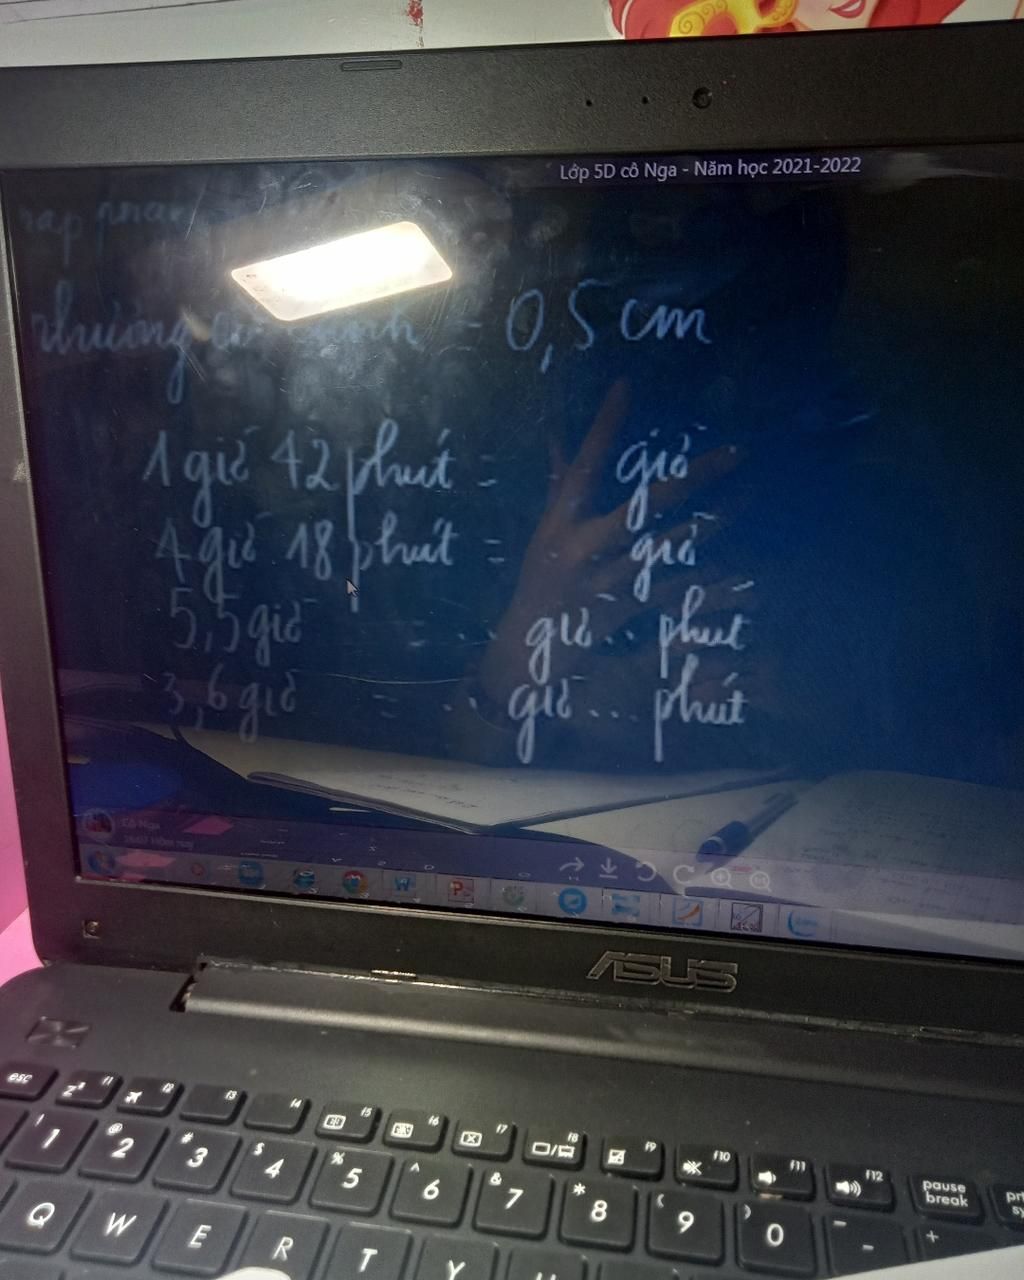 Lớp 5D cô Nga - Năm học 2021-2022
= 0,5 cm
1 giờ 42 phút = giờ
4 giờ 18 phút = .. giờ
5,5 giờ = .. giờ .. phút
3,6 giờ = .. giờ ... phút
Cô Nga
ASUS
esc f1 f2 f3 f4 f5 f6 f7 f8 f9 f10 f11 f12 pause break
! 1 @ 2 # 3 $ 4 % 5 ^ 6 & 7 * 8 ( 9 ) 0 - +
Q W E R T Y